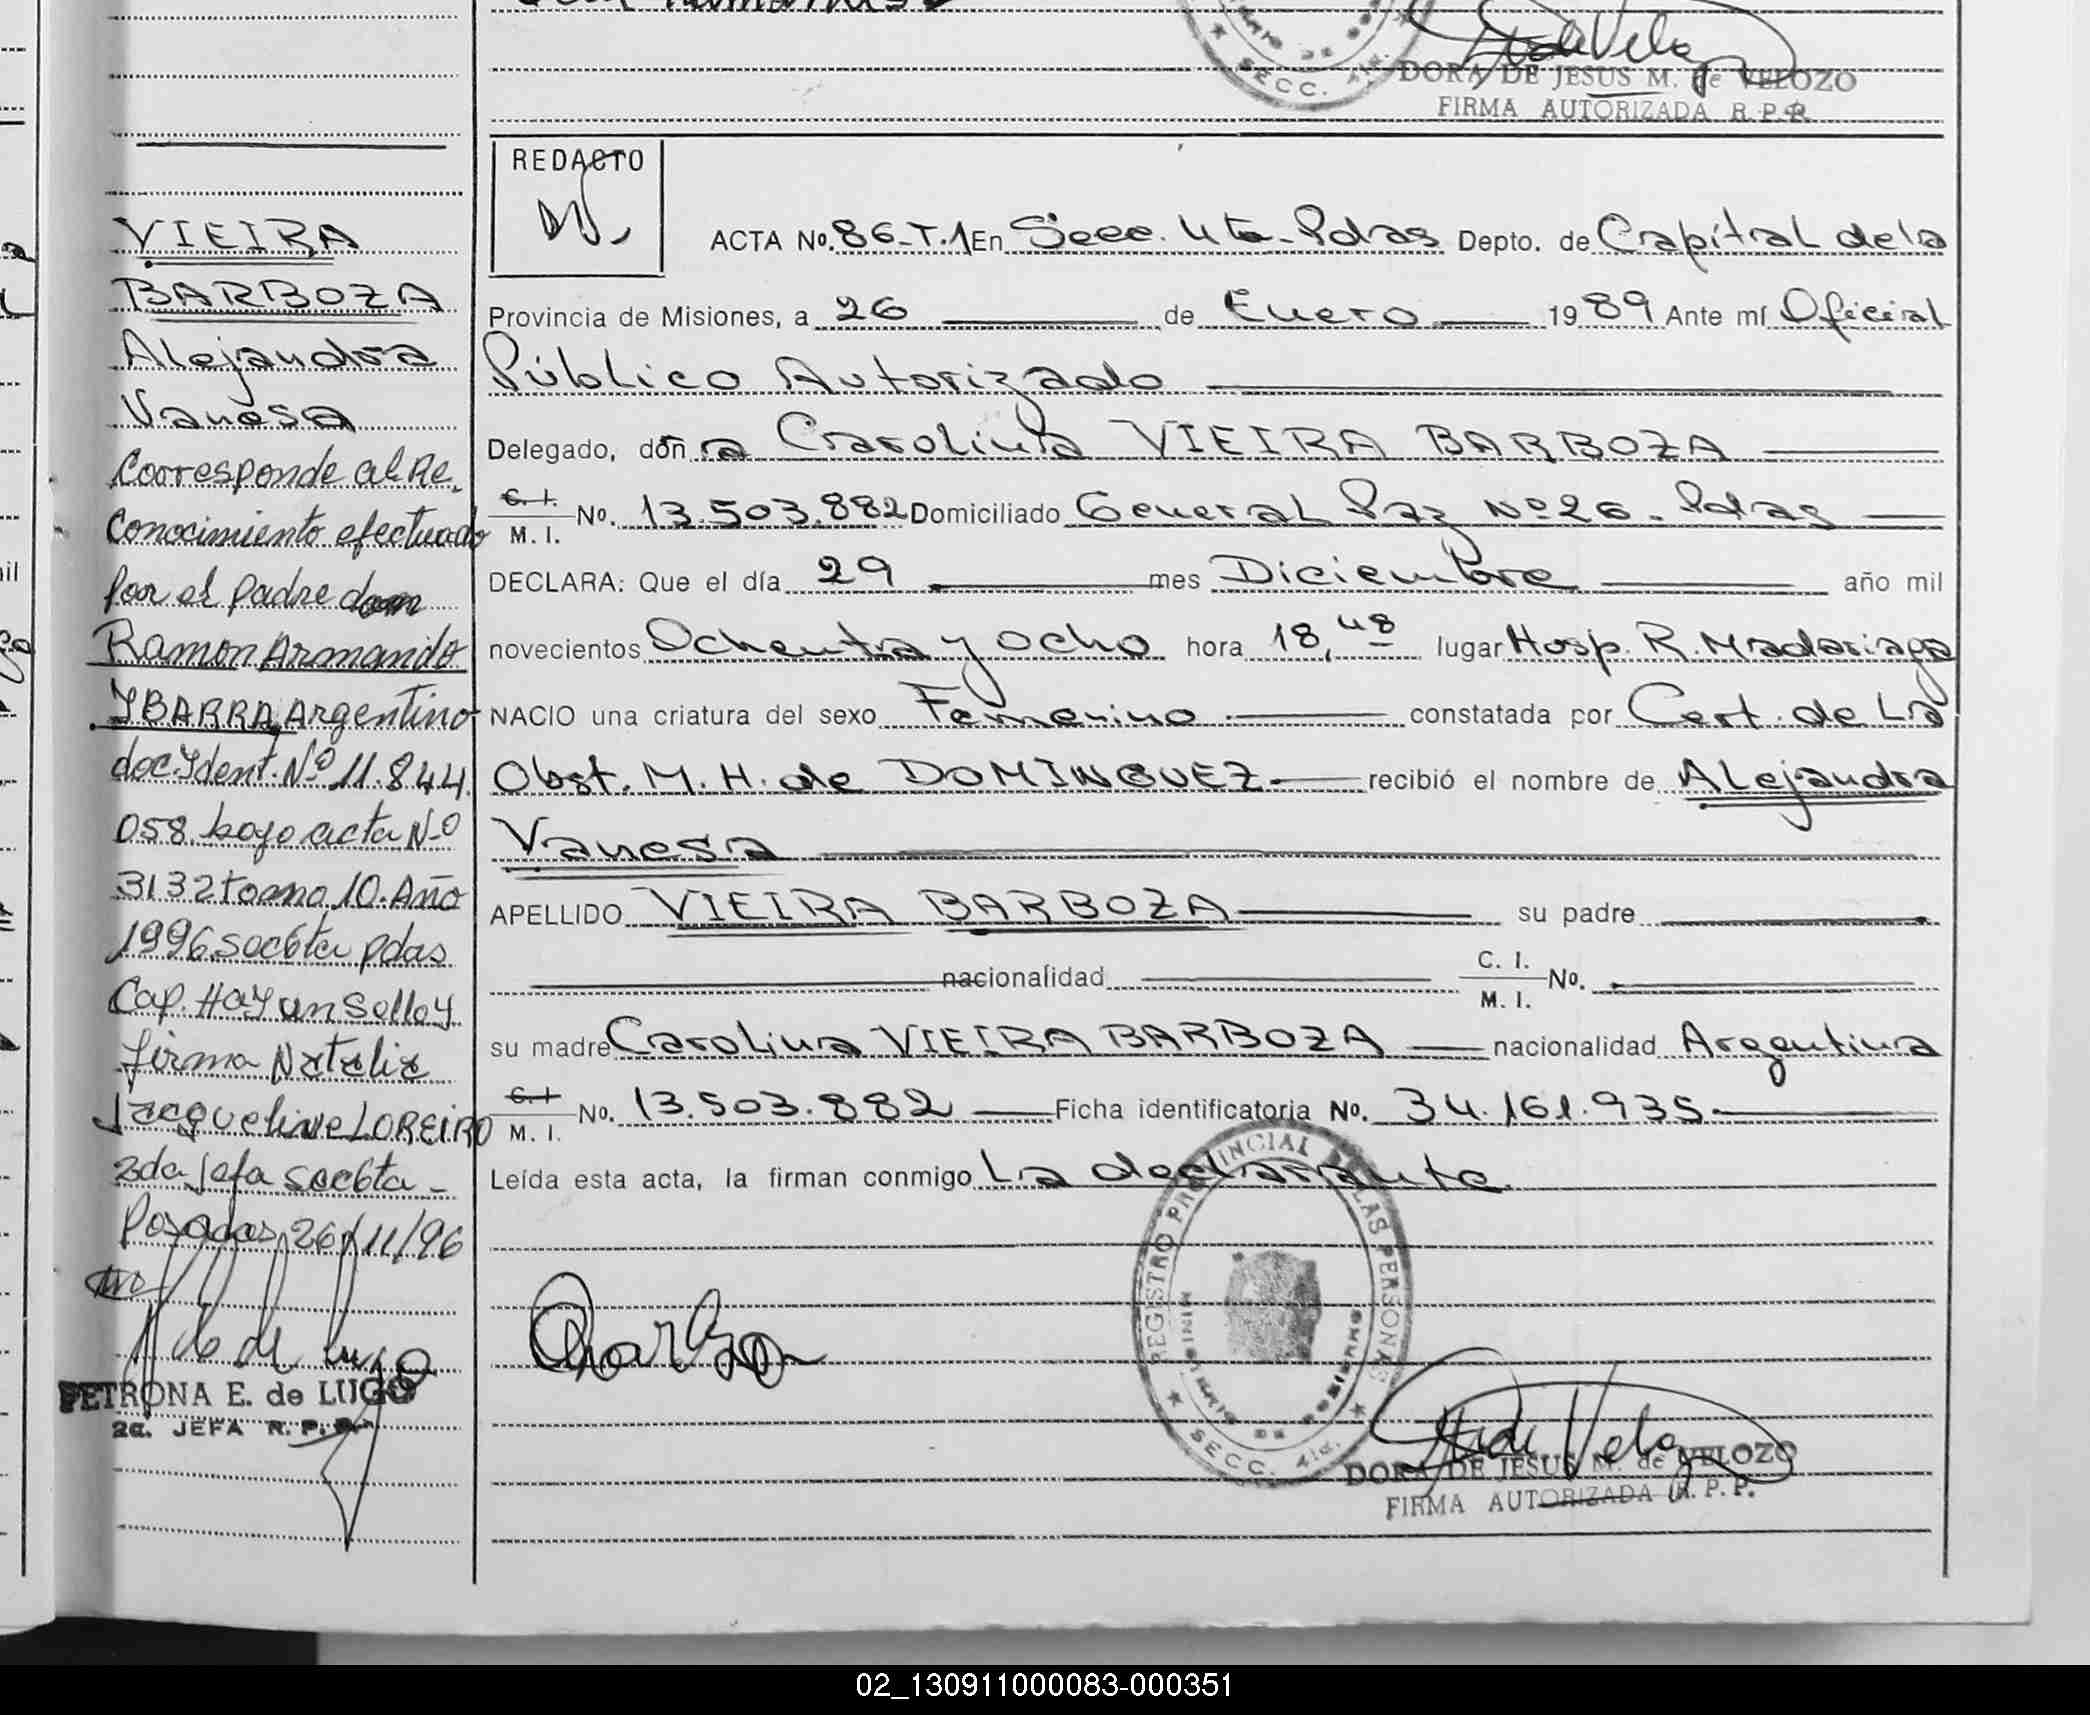 DORA DE JESUS M. de VELOZO
FIRMA AUTORIZADA R. P. P.
SECC. 4ta.
VIEIRA
BARBOZA
Alejandra
Vanesa
Corresponde al Re
conocimiento efectuado
por el padre don
Ramon Armando
YBARRA, Argentino
doc Ydent. Nº 11.844.
058 bajo acta Nº
3132 tomo 10. Año
1996 secc 6ta pdas
Cap. Hay un sello y
firma Natalia
Jacqueline LOREIRO
2da Jefa secc 6ta -
Posadas, 26/11/96
PETRONA E. de LUGO
2a. JEFA R. P. P.
REDACTO
ACTA No. 86-T.1 En Secc. 4ta - Pdas Depto. de Capital de la
Provincia de Misiones, a 26 de Enero 1989 Ante mí Oficial
Público Autorizado
Delegado, doña Carolina VIEIRA BARBOZA
C. I.
M. I. No. 13.503.882 Domiciliado General Paz Nº 26 - Pdas
DECLARA: Que el día 29 mes Diciembre año mil
novecientos Ochenta y ocho hora 18,48 lugar Hosp. R. Madariaga
NACIO una criatura del sexo Femenino constatada por Cert. de La
Obst. M. H. de DOMINGUEZ recibió el nombre de Alejandra
Vanesa
APELLIDO VIEIRA BARBOZA su padre
nacionalidad C. I.
M. I. No.
su madre Carolina VIEIRA BARBOZA nacionalidad Argentina
C. I.
M. I. No. 13.503.882 Ficha identificatoria No. 34.161.935
Leída esta acta, la firman conmigo La declarante.
REGISTRO PROVINCIAL DE LAS PERSONAS
SECC. 4ta.
DORA DE JESUS M. de VELOZO
FIRMA AUTORIZADA R. P. P.
02_130911000083-000351